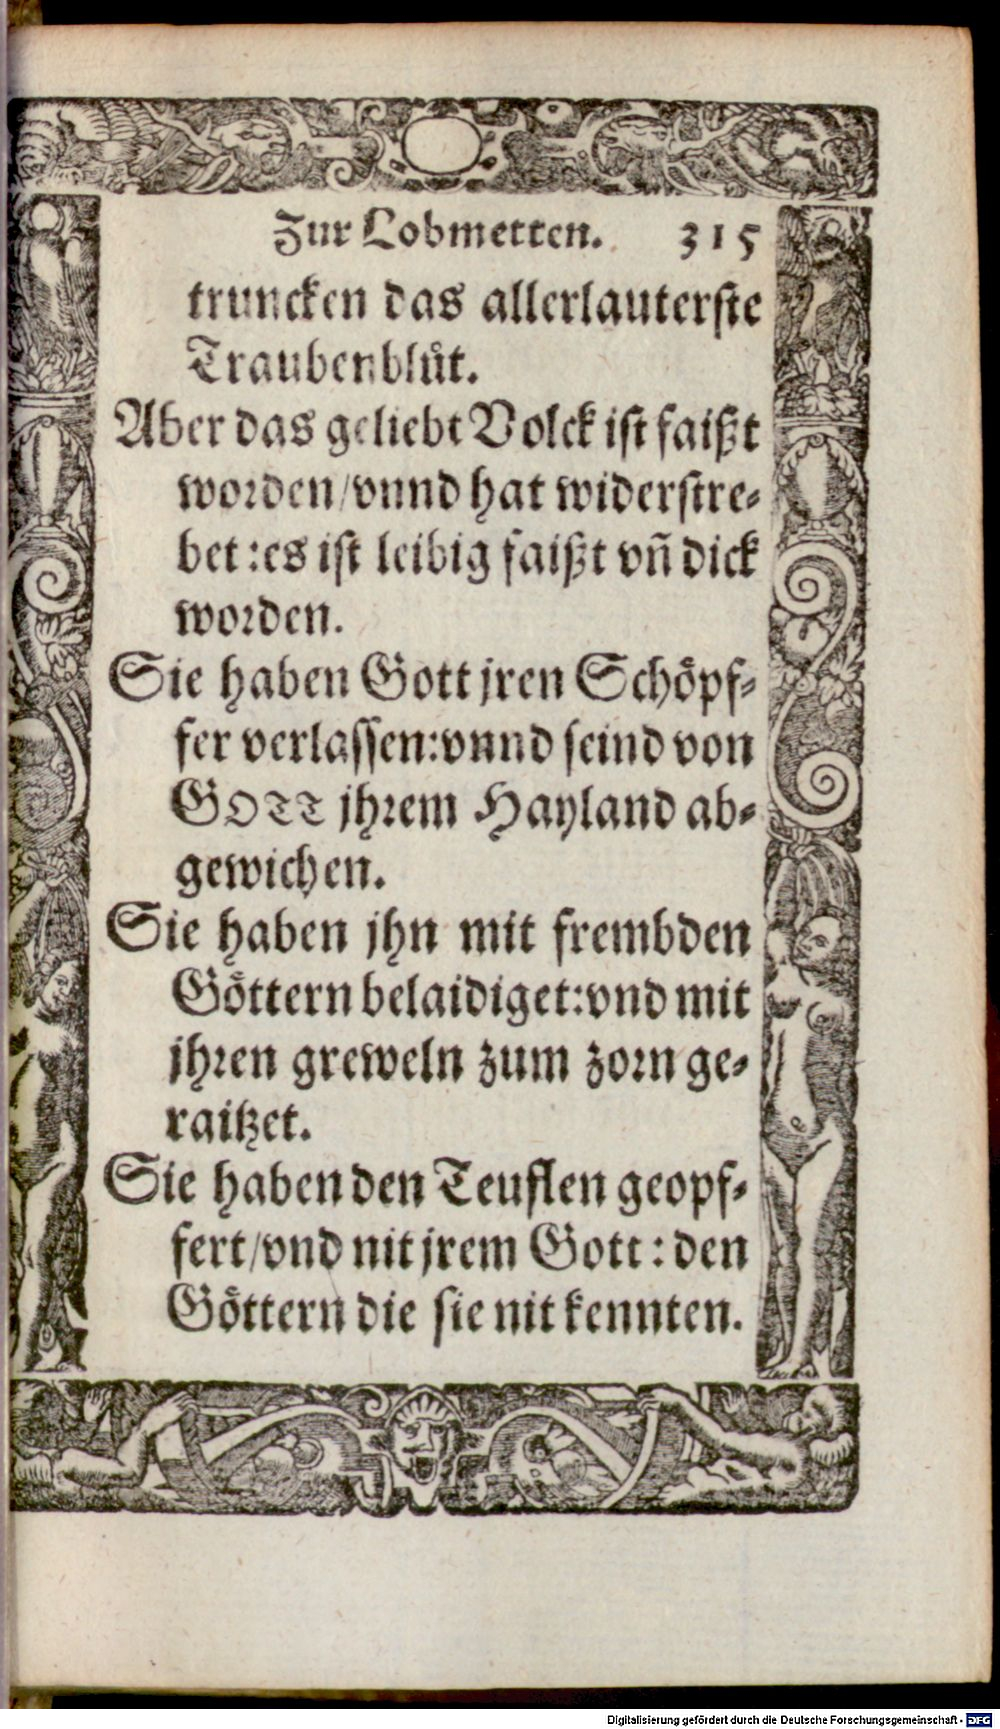 Zur Lobmetten. 315
truncken das allerlauterste
Traubenblůt.
Aber das geliebt Volck ist faißt
worden/vnnd hat widerstre-
bet: es ist leibig faißt vñ dick
worden.
Sie haben Gott jren Schöpf-
fer verlassen: vnnd seind von
GOTT jhrem Hayland ab-
gewichen.
Sie haben jhn mit frembden
Göttern belaidiget: vnd mit
jhren greweln zum zorn ge-
raitzet.
Sie haben den Teuflen geopf-
fert/vnd nit jrem Gott: den
Göttern die sie nit kennten.
Digitalisierung gefördert durch die Deutsche Forschungsgemeinschaft - DFG